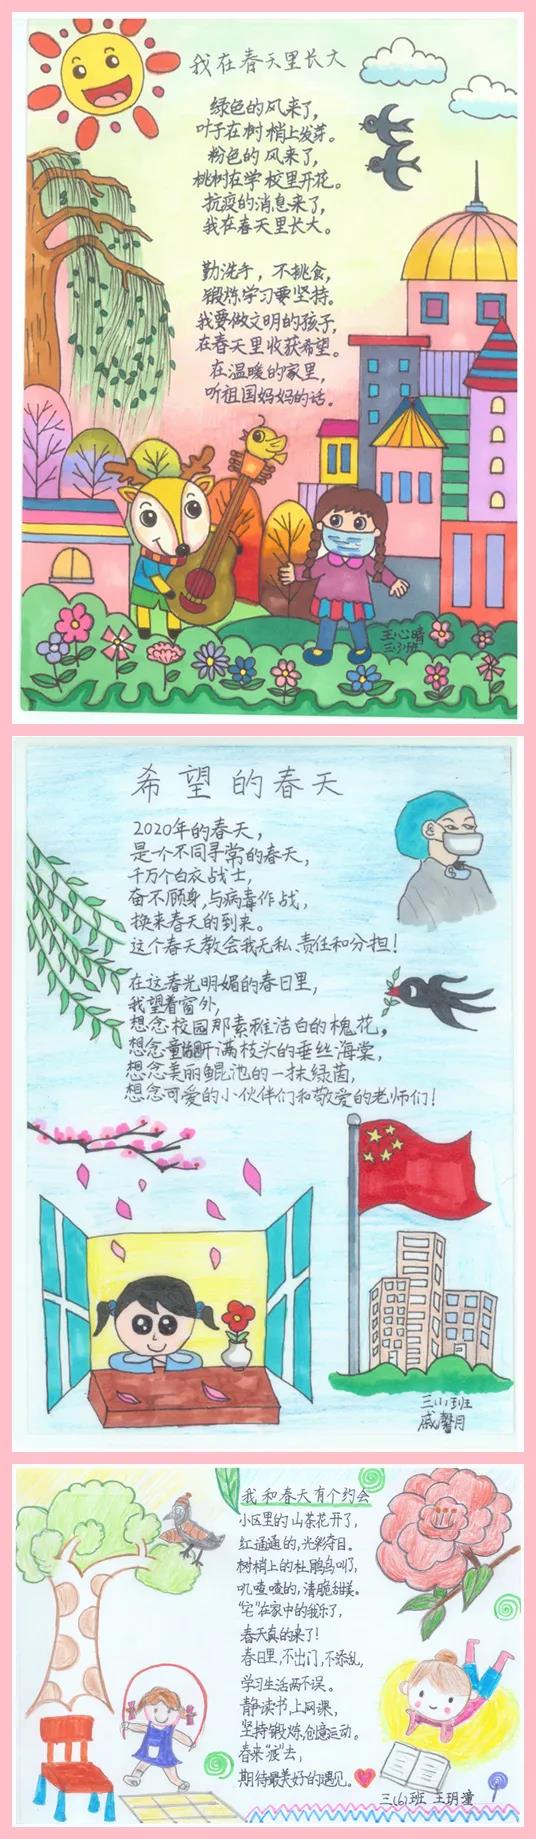 我在春天里长大
绿色的风来了,
叶子在树梢上发芽。
粉色的风来了,
桃树在学校里开花。
抗疫的消息来了,
我在春天里长大。
勤洗手，不挑食,
锻炼学习要坚持。
我要做文明的孩子,
在春天里收获希望。
在温暖的家里,
听祖国妈妈的话。
王心晴
三(3)班
希望的春天
2020年的春天,
是一个不同寻常的春天,
千万个白衣战士,
奋不顾身,与病毒作战,
换来春天的到来。
这个春天教会我无私、责任和分担!
在这春光明媚的春日里,
我望着窗外,
想念校园那素雅洁白的槐花,
想念开满枝头的垂丝海棠,
想念美丽鲲池的一抹绿茵,
想念可爱的小伙伴们和敬爱的老师们!
三(1)班
戚馨月
我和春天有个约会
小区里的山茶花开了,
红通通的,光彩夺目。
树梢上的杜鹃鸟叫了,
叽喳喳的,清脆甜美。
"宅"在家中的我乐了,
春天真的来了!
春日里,不出门,不添乱,
学习生活两不误。
静读书,上网课,
坚持锻炼,创意运动。
春来"疫"去,
期待最美好的遇见。
三(6)班 王玥潼